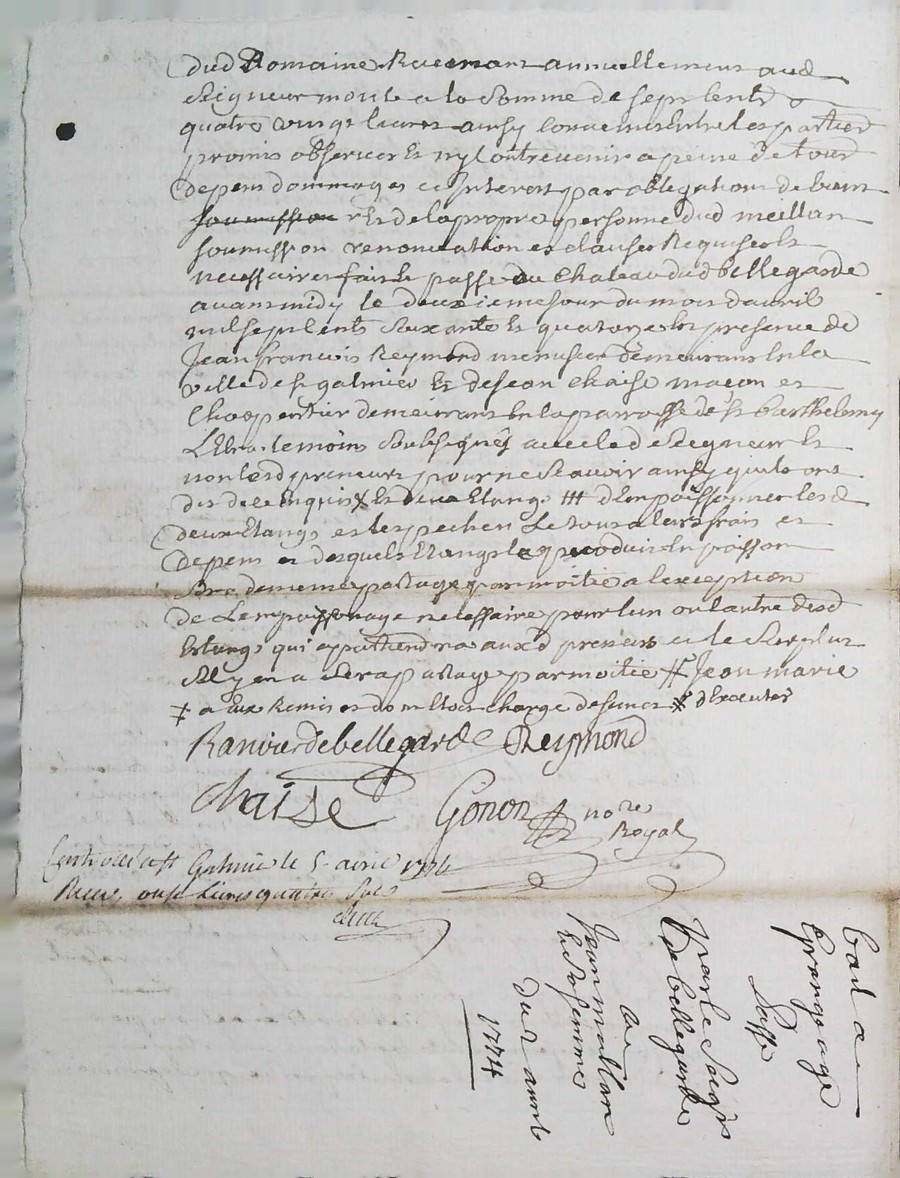 dud Domaine Revenant annuellement aud
Seigneur monte a la Somme de sept Cents
quatre vingt livres ainsy Convenu Entre les parties
promis observer Et ny Contrevenir a peine de tous
depens dommages et interest par obligations de biens
soumission Et de la propre personne dud meillan
soumission renonciation et clauses Requises Et
necessaires fait Et passé au Chateau dud bellegarde
avant midy le deuxieme Jour du mois d'avril
mil sept Cents Soixante Et quatorze En presence de
Jean francois Reymond menusier demeurant En la
ville de st galmier Et de Jean Chaise macon et
Charpentier demeurant En la parroisse de st barthelemy
Lestra temoins Soussignés avec led Seigneur Et
non lesd preneurs pour ne Scavoir ainsy quils ont
dit de ce Enquis X Et deux Etangs ## d'Empoissonner lesd
deux Etangs et les pecher Le tous a leurs frais et
depens et desquels Etangs le produit En poisson
Sera de meme partagé par moitié a l'exception
de Lempoissonage necessaire pour lun ou lautre desd
Etangs qui appartiendra auxd preneurs et le Surplus
Sil y en a Sera partagé par moitié # Jean marie
‡ a Eux Remis et dom Ettoit chargé X d'Executer
Ranvier de bellegarde Reymond
Chaise Gonon nore
Royal
Controlé a st Galmier le 5 avril 1774
Recu onze Livres quatre Sols
bail a
Grangeage
Passé
par le Seigr
De bellegarde
a
Jean meillan
et Sa femme
du 2 avril
1774